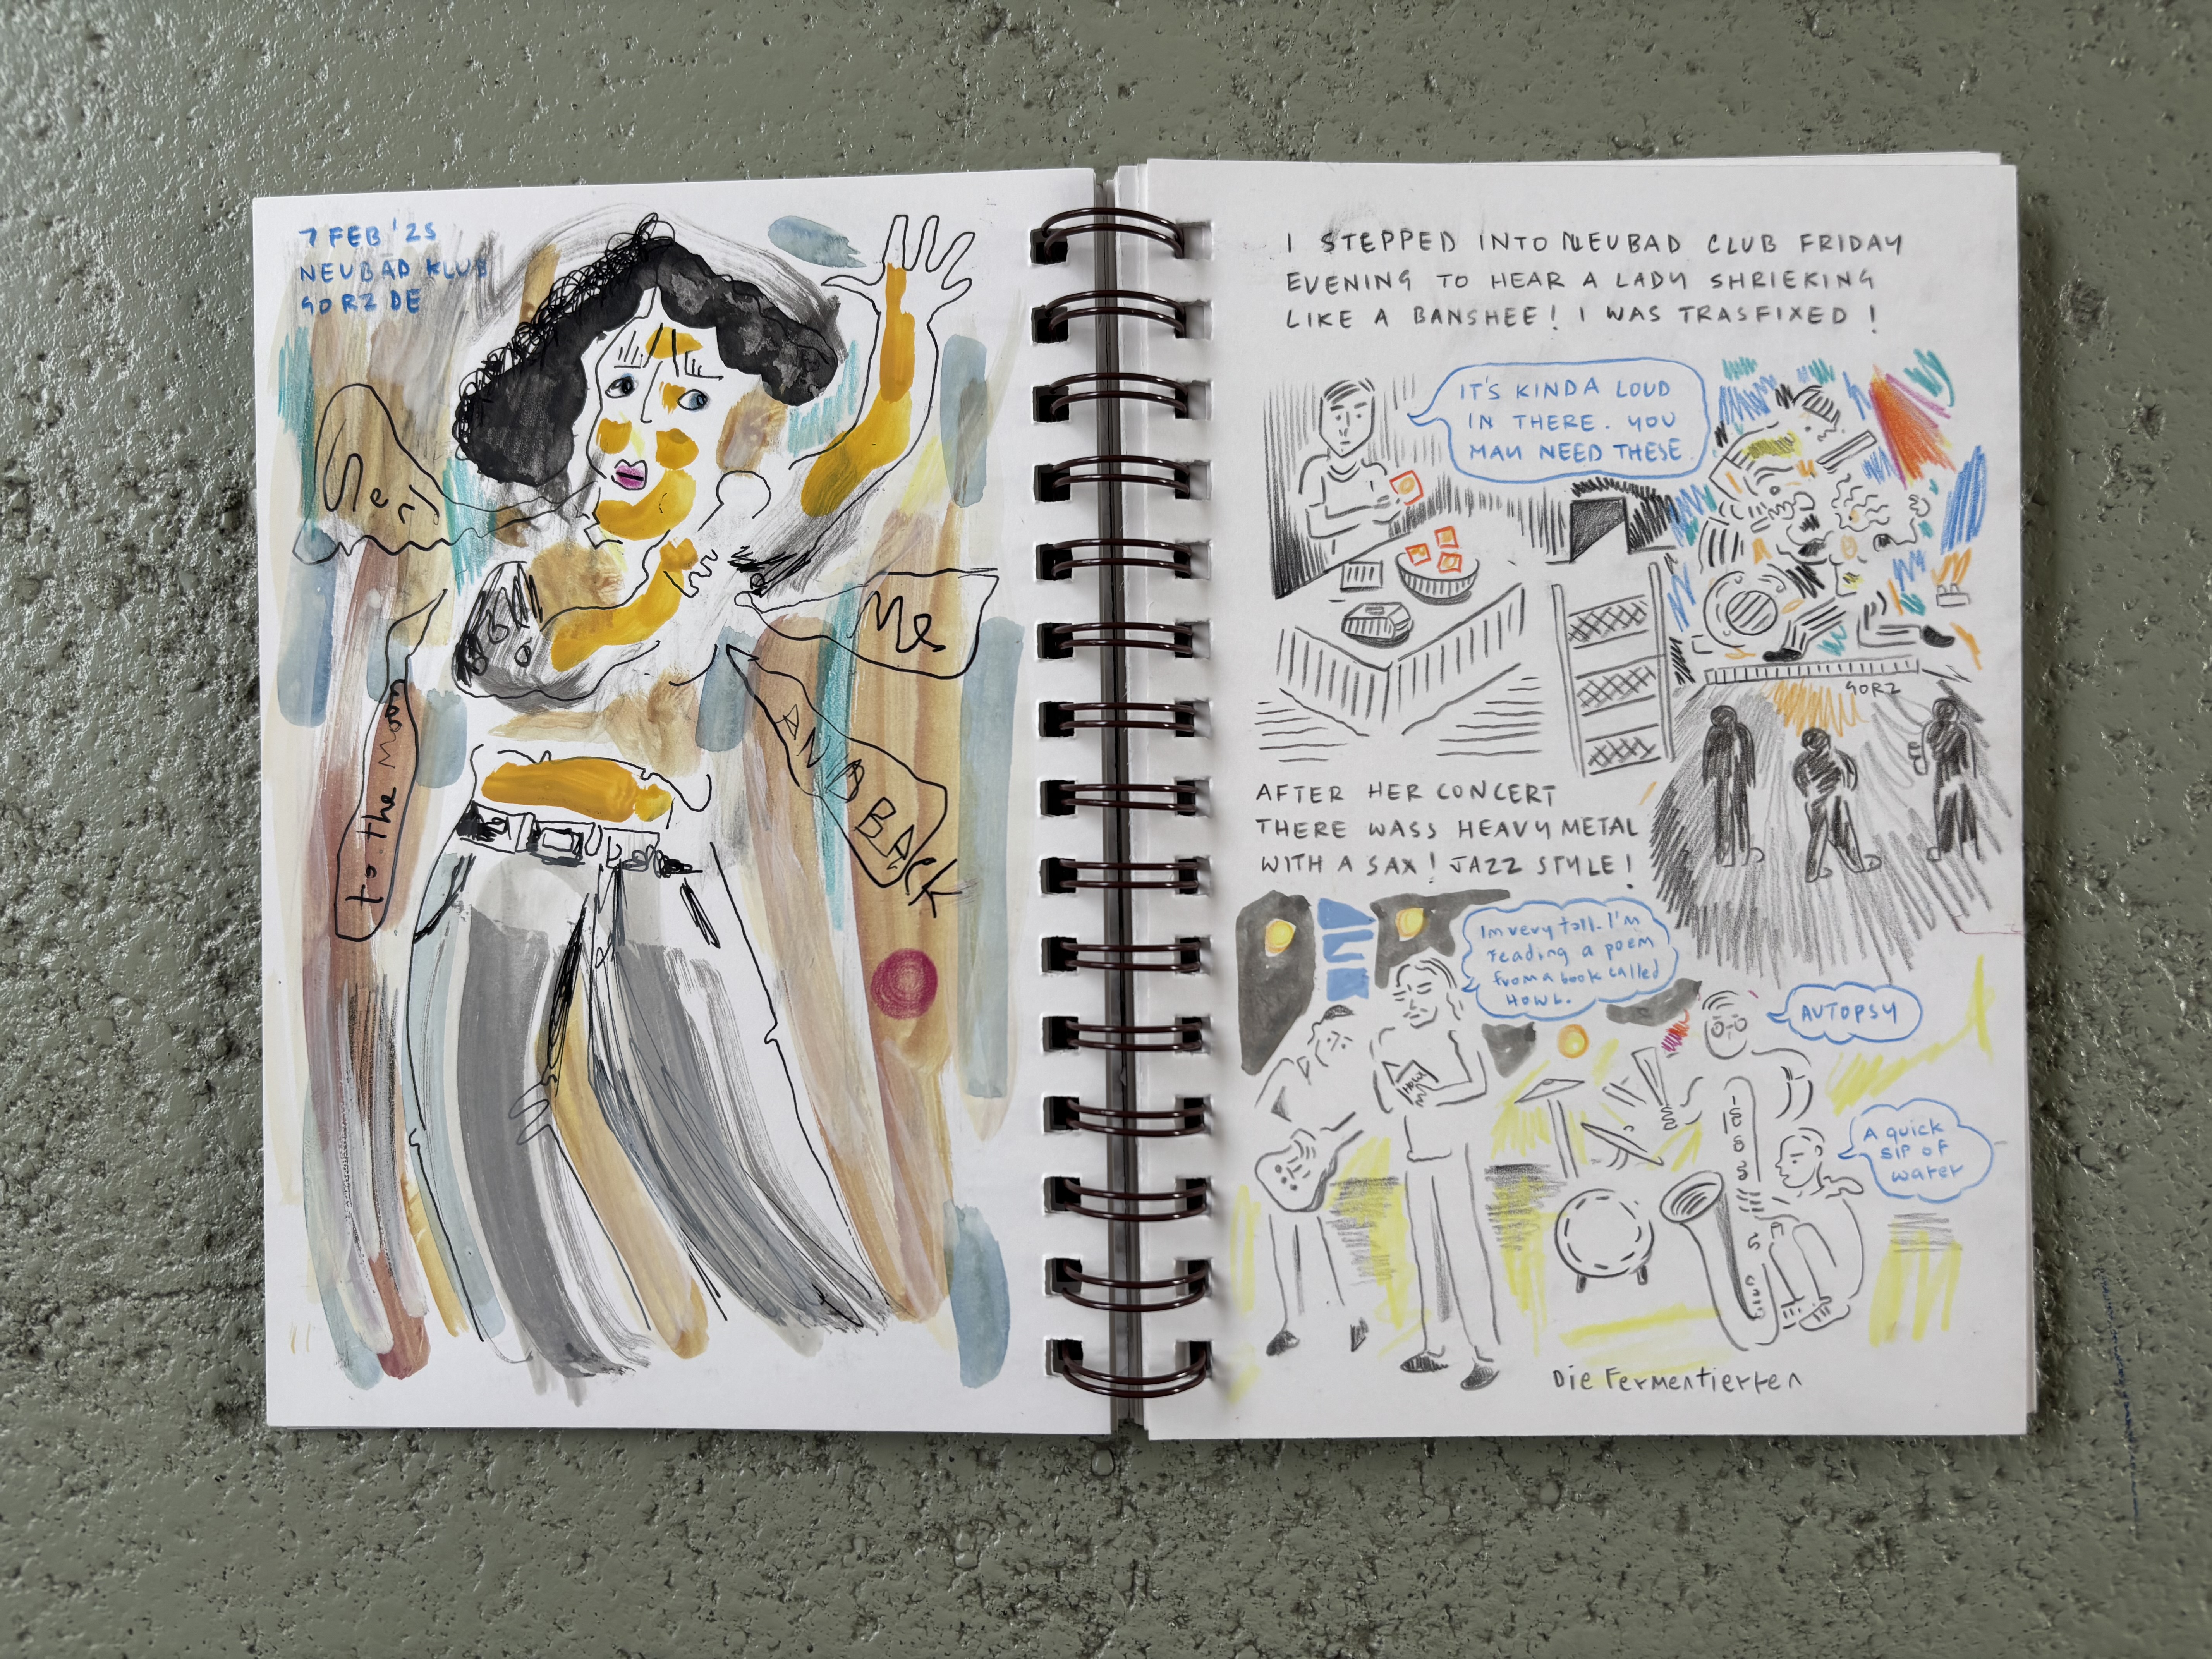 7 FEB '25
NEUBAD KLUB
GORZ DE
Send
Me
to the Moon
AND BACK
I STEPPED INTO NEUBAD CLUB FRIDAY
EVENING TO HEAR A LADY SHRIEKING
LIKE A BANSHEE! I WAS TRASFIXED!
IT'S KINDA LOUD
IN THERE. YOU
MAY NEED THESE
GORZ
AFTER HER CONCERT
THERE WASS HEAVY METAL
WITH A SAX! JAZZ STYLE!
Im very tall. I'm
reading a poem
from a book called
HOWL.
HOWL
AUTOPSY
A quick
sip of
water
Die Fermentierten